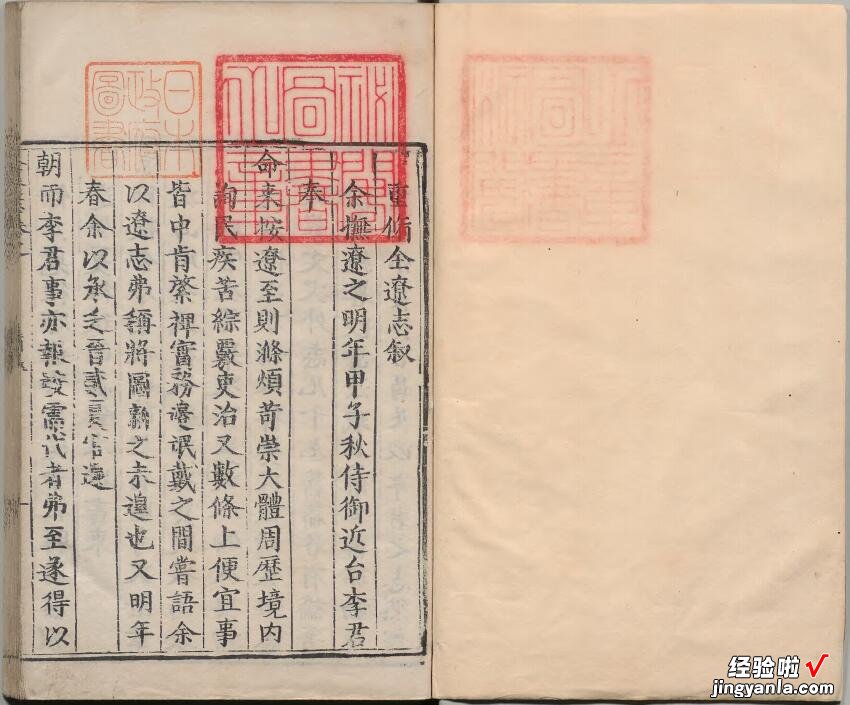 重脩全遼志叙
余撫遼之明年甲子秋侍御近台李君
奉
命來按遼至則滌煩苛崇大體周歷境内
詢民疾苦綜覈吏治又數條上便宜事
皆中肯綮裨富務邊氓戴之間嘗語余
以遼志弗稱將圖新之未遑也又明年
春余以承乏晉貳夏官還
朝而李君事亦報竣需代者弗至遂得以
日本政府圖書
秘閣圖書之章
经验啦√
jingyanla.com